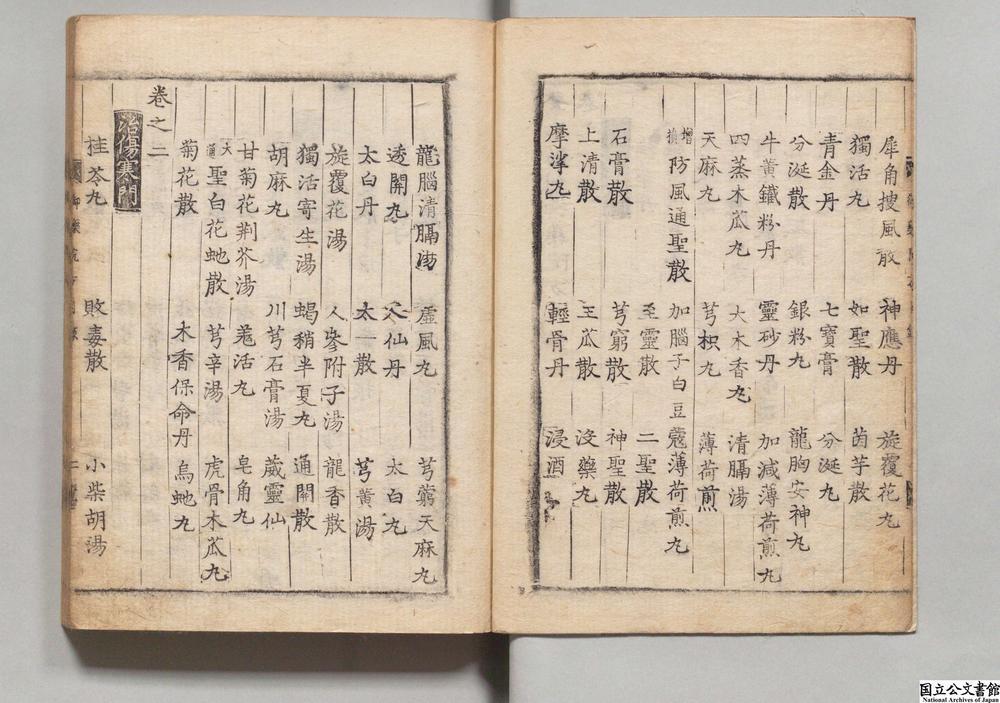 犀角搜風散 神應丹 旋覆花丸
獨活丸 如聖散 茵芋散
青金丹 七寶膏 分涎丸
分涎散 銀粉丸 龍胸安神丸
牛黃鐵粉丹 靈砂丹 加減薄荷煎丸
四蒸木瓜丸 大木香丸 清膈湯
天麻丸 芎枳丸 薄荷煎
增損防風通聖散 加腦子白豆蔻薄荷煎丸
石膏散 至靈散 二聖散
上清散 芎窮散 神聖散
摩挲丸 王瓜散 沒藥丸
輕骨丹 浸酒
龍腦清膈湯 虛風丸 芎藭天麻丸
透關丸 八仙丹 太白丸
太白丹 太一散 芎黃湯
旋覆花湯 人參附子湯 龍香散
獨活寄生湯 蝎稍半夏丸 通關散
胡麻丸 川芎石膏湯 葳靈仙
甘菊花荆芥湯 羌活丸 皂角丸
大通聖白花虵散 芎辛湯 虎骨木瓜丸
菊花散 木香保命丹 烏虵丸
卷之二
治傷寒門
桂苓丸 敗毒散 小柴胡湯
国立公文書館
National Archives of Japan